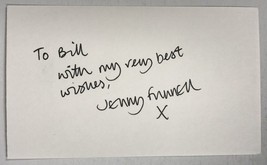 To Bill
with my very best
wishes,
Jenny Funnell
X